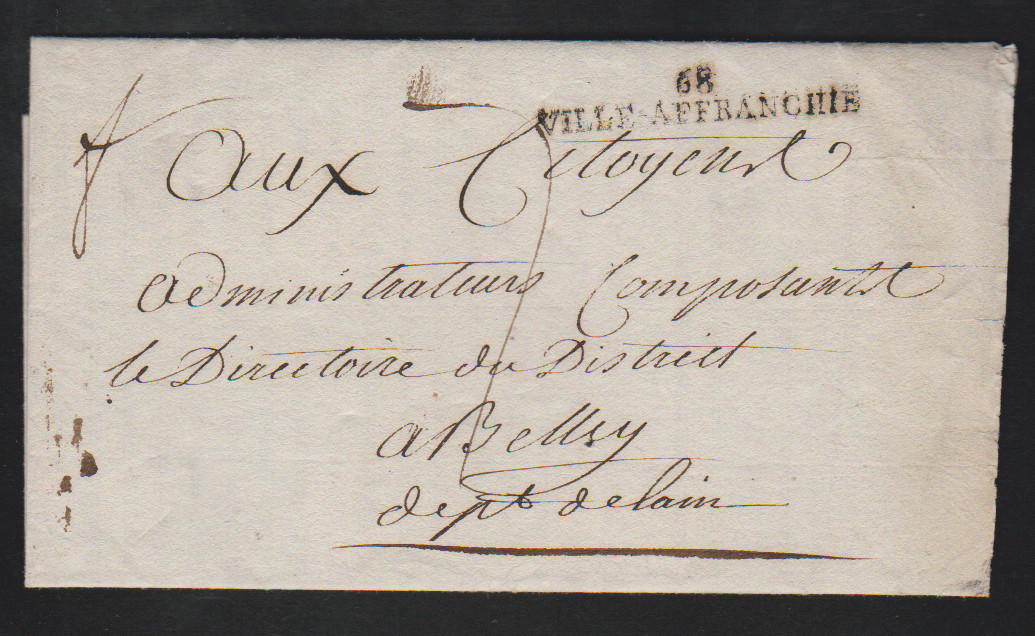 68
VILLE-AFFRANCHIE
aux Citoyens
administrateurs Composants
le Directoire du District
a Belley
dept de lain